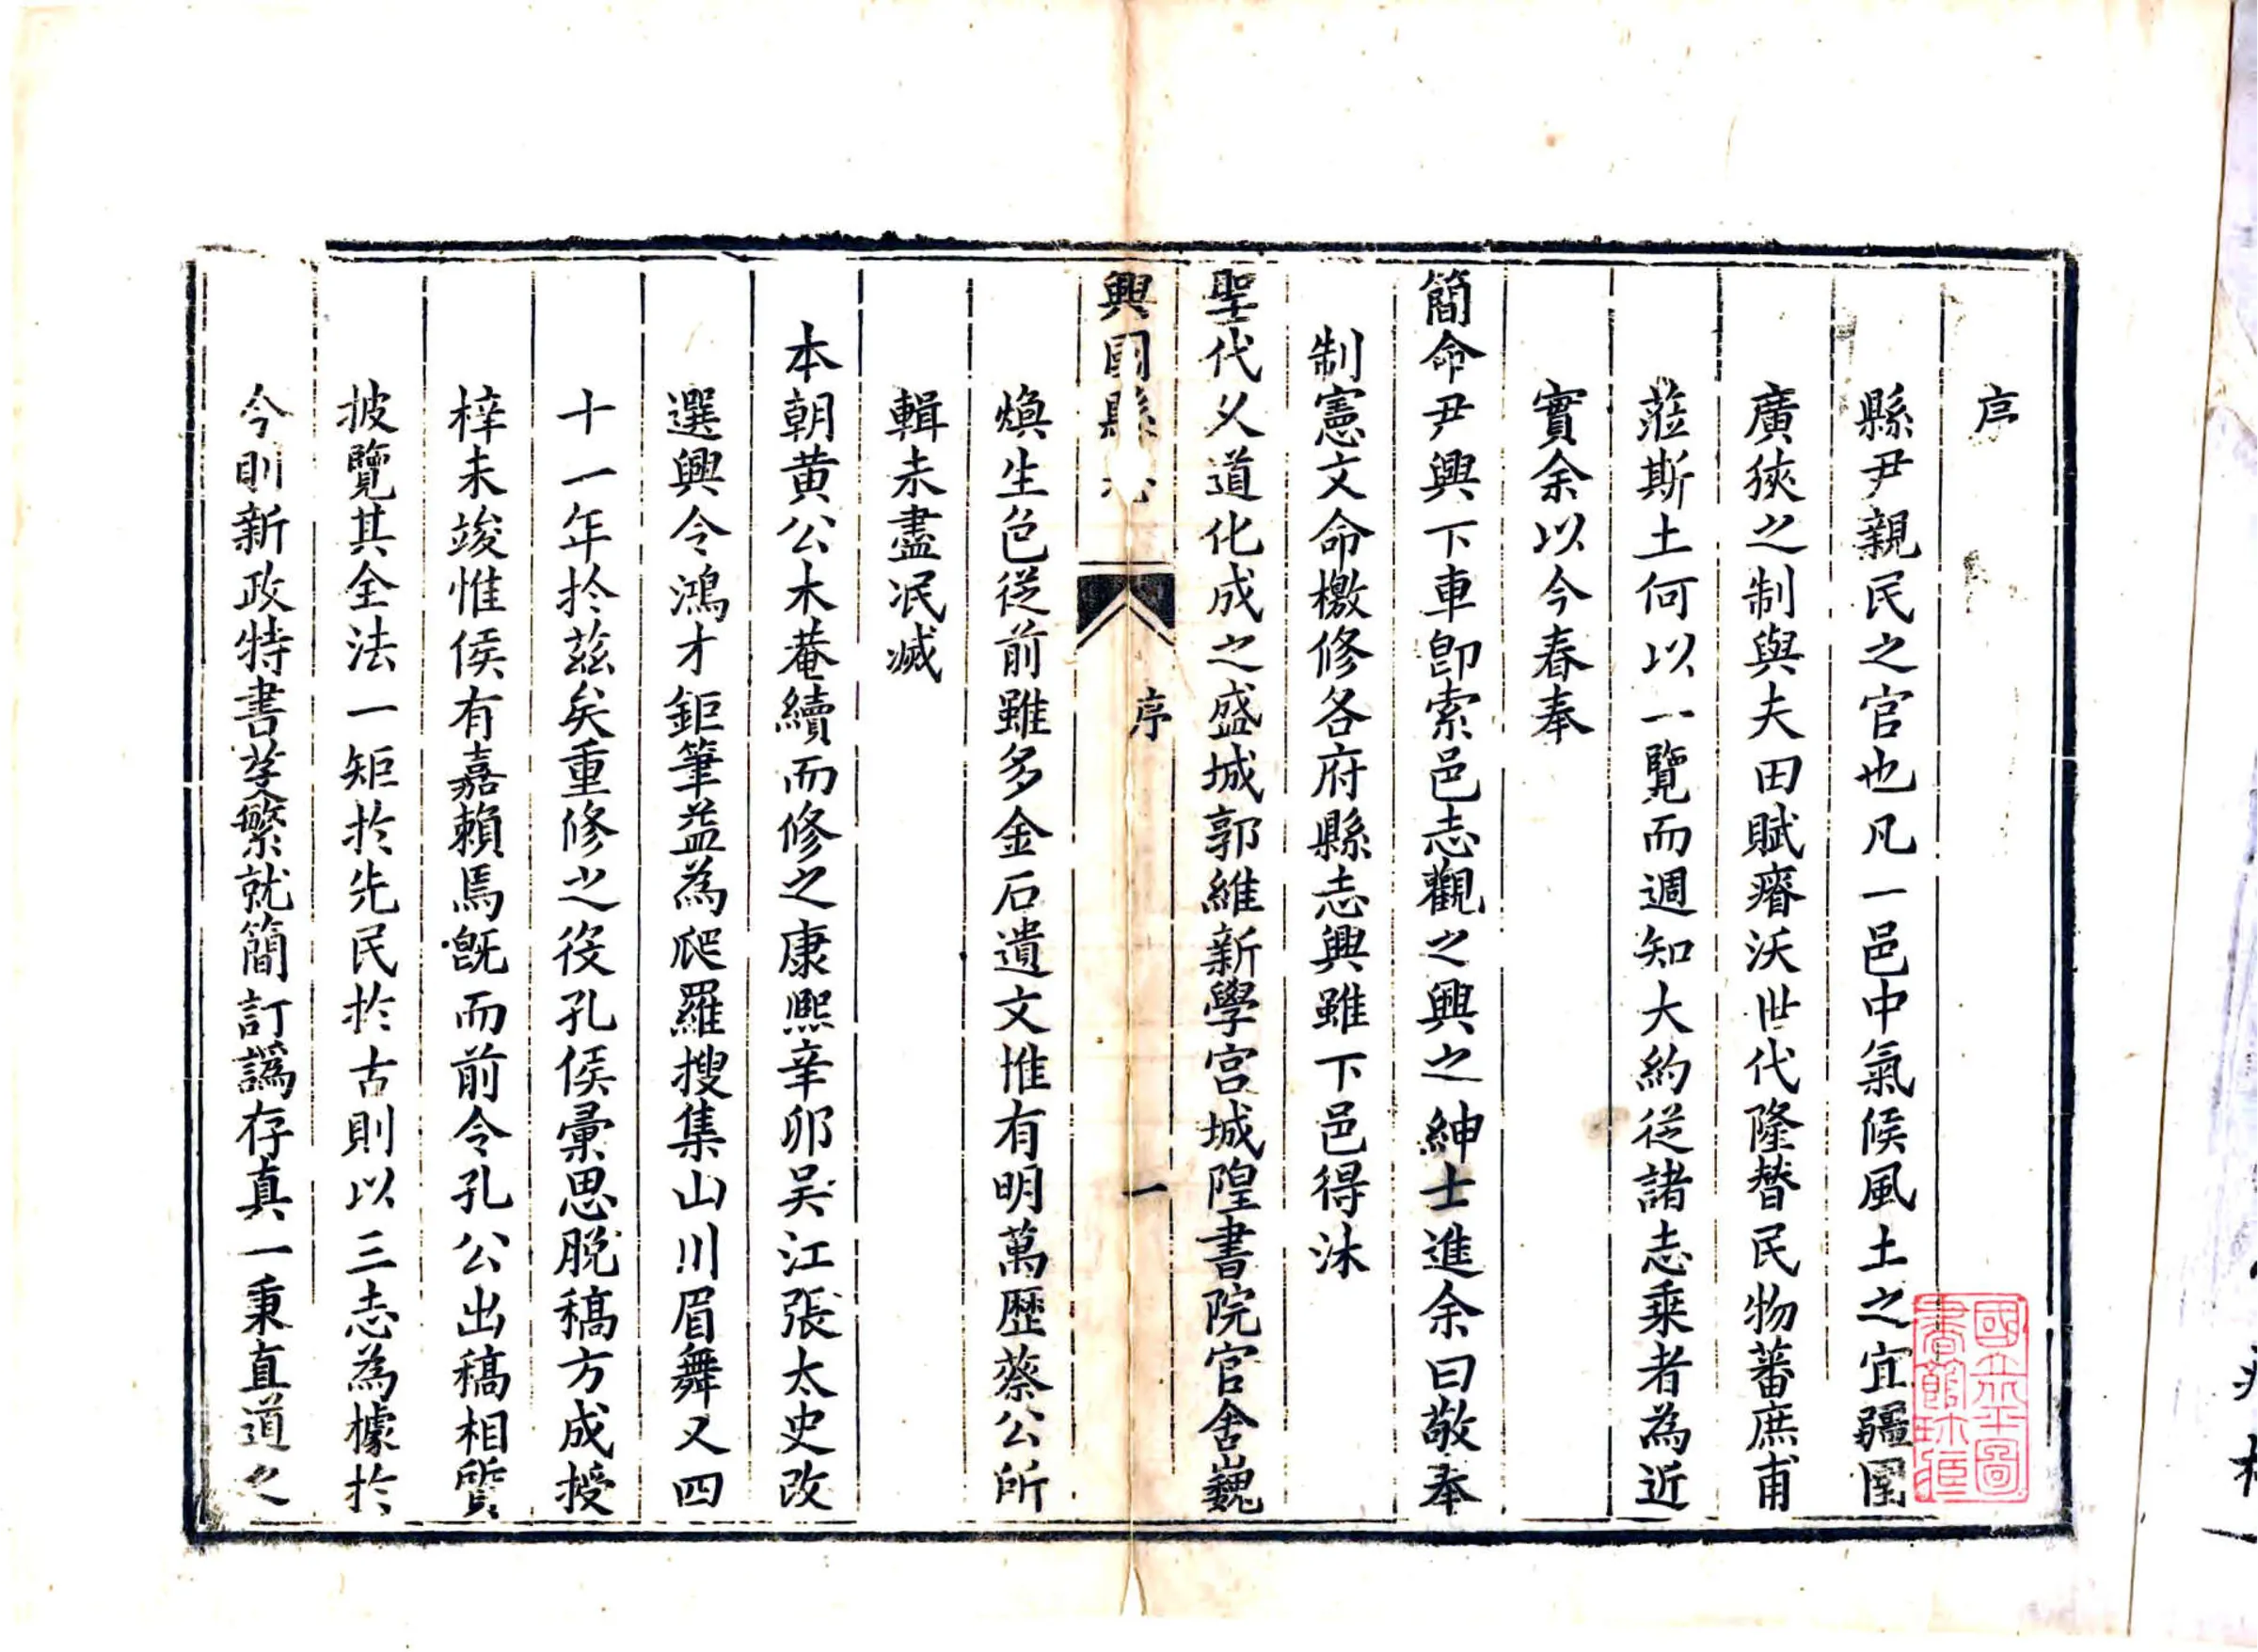 序
縣尹親民之官也凡一邑中氣候風土之宜疆圉
廣狹之制與夫田賦瘠沃世代隆替民物蕃庶甫
蒞斯土何以一覽而週知大約從諸志乘者為近
實余以今春奉
簡命尹興下車卽索邑志觀之興之紳士進余曰敬奉
制憲文命檄修各府縣志興雖下邑得沐
聖代乂道化成之盛城郭維新學宮城隍書院官舍巍
興國縣
序
一
煥生色從前雖多金石遺文惟有明萬歷蔡公所
輯未盡泯滅
本朝黄公木菴續而修之康熙辛夘吴江張太史改
選興令鴻才鉅筆益為爬羅搜集山川眉舞又四
十一年扵茲矣重修之役孔侯彙思脫稿方成授
梓未竣惟侯有嘉賴焉旣而前令孔公出稿相質
披覽其全法一矩扵先民扵古則以三志為據扵
今則新政特書芟繁就簡訂譌存真一秉直道之
國立北平圖
書館珎藏